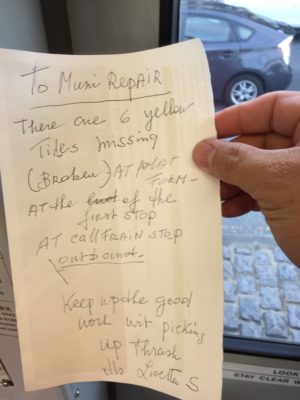 To Muni Repair
There are 6 yellow
Tiles missing
(Broken) AT PLAT
FORM-
AT the of the
first stop
AT call TRAIN STOP
outbound.
Keep up the good
work wit picking
up Thrash
S
LOOK
STAY CLEAR